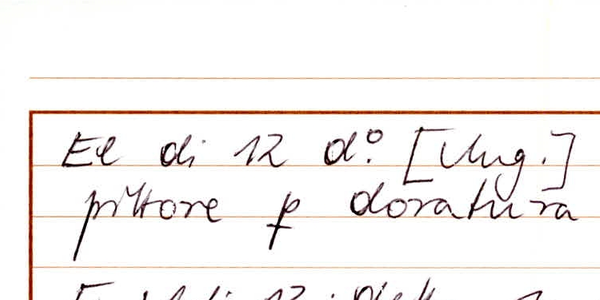 El di 12 d.º [Aug.]
pittore p doratura